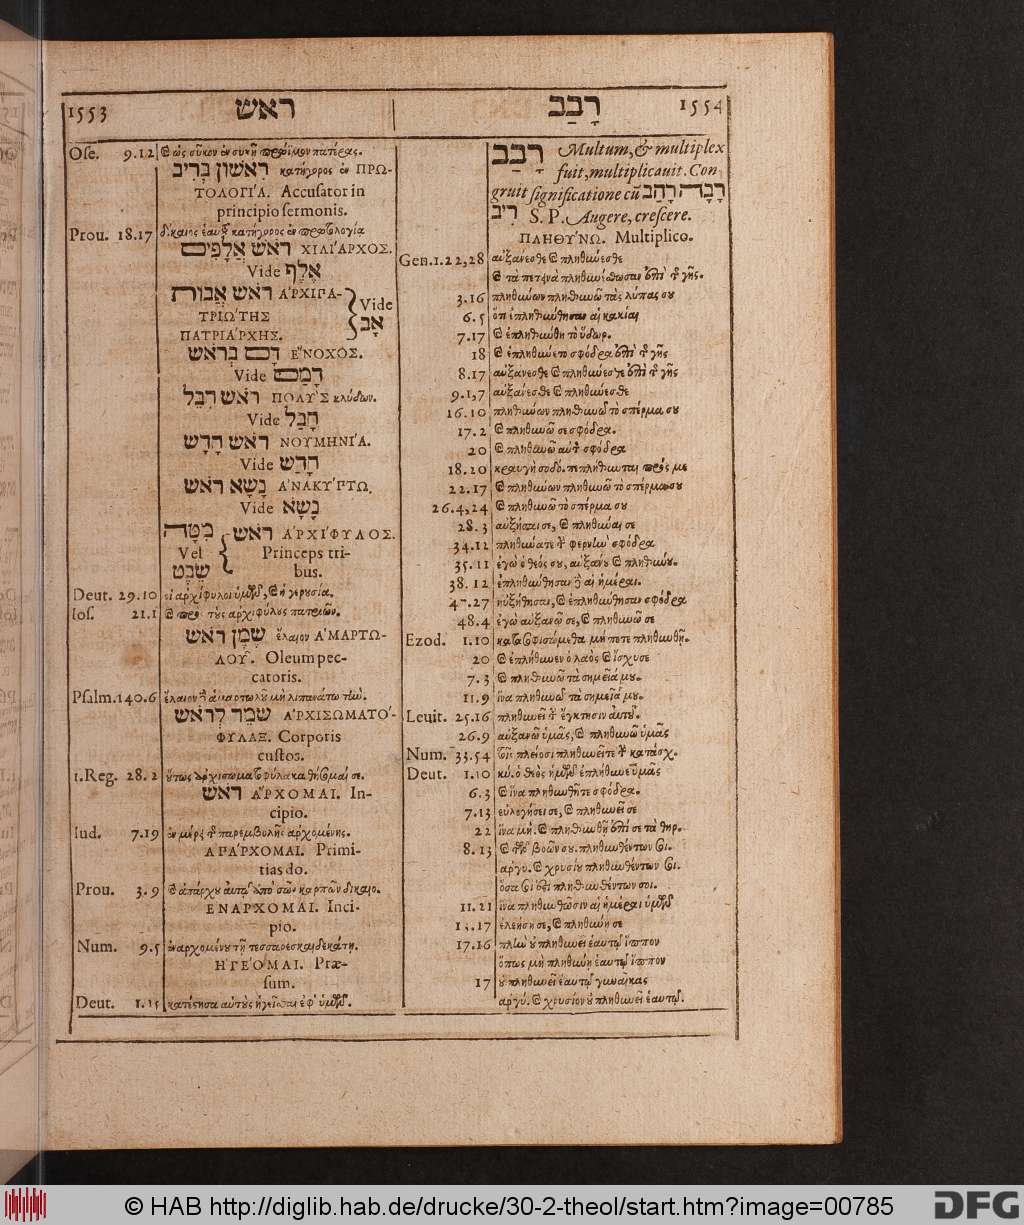 1553 ראש
Ose. 9.12 ὡς σῦκον ἐν συκῇ πρόϊμον πατέρας.
רִאשׁוֹן בְּרִיב κατήγορος ἐν ΠΡΩ-
ΤΟΛΟΓΙΑ. Accusator in
principio sermonis.
Prou. 18.17 δίκαιος ἑαυτοῦ κατήγορος ἐν πρωτολογία
רֹאשׁ אֲלָפִים ΧΙΛΙΑΡΧΟΣ.
Vide אֶלֶף
רֹאשׁ אָבוֹת ΑΡΧΙΠΑ-
ΤΡΙΩΤΗΣ Vide
ΠΑΤΡΙΑΡΧΗΣ. אָב
דָּם בְּרֹאשׁ ΕΝΟΧΟΣ.
Vide דָּמַם
רֹאשׁ חֹבֵל ΠΟΛΥΣ κλύδων.
Vide חָבַל
רֹאשׁ חֹדֶשׁ ΝΟΥΜΗΝΙΑ.
Vide חָדַשׁ
נָשָׂא רֹאשׁ ΑΝΑΚΥΠΤΩ.
Vide נָשָׂא
מַטֶּה רֹאשׁ ΑΡΧΙΦΥΛΟΣ.
Vel Princeps tri-
שֵׁבֶט bus.
Deut. 29.10 οἱ ἀρχίφυλοι ὑμῶν, καὶ ἡ γερυσία.
Ios. 21.1 πρὸς τοὺς ἀρχιφύλους πατριῶν.
שֶׁמֶן רֹאשׁ ἔλαιον ΑΜΑΡΤΩ-
ΛΟΥ. Oleum pec-
catoris.
Psalm. 140.6 ἔλαιον δὲ ἁμαρτωλοῦ μὴ λιπανάτω τὴν.
שֹׁמֵר לְרֹאשׁ ΑΡΧΙΣΩΜΑΤΟ-
ΦΥΛΑΞ. Corporis
custos.
1.Reg. 28.2 οὕτως ἀρχισωματοφύλακα θήσομαί σε.
רֹאשׁ ΑΡΧΟΜΑΙ. In-
cipio.
Iud. 7.19 ἐν μέρει τῆς παρεμβολῆς ἀρχομένης.
ΑΠΑΡΧΟΜΑΙ. Primi-
tias do.
Prou. 3.9 καὶ ἀπάρχου αὐτῷ ἀπὸ σῶν καρπῶν δικαιο.
ΕΝΑΡΧΟΜΑΙ. Inci-
pio.
Num. 9.5 ἐναρχομένου τῇ τεσσαρεσκαιδεκάτῃ.
ΗΓΕΟΜΑΙ. Præ-
sum.
Deut. 1.15 κατέστησα αὐτοὺς ἡγεῖσθαι ἐφ' ὑμῶν.
רָבַב 1554
רָבַב Multum, & multiplex
fuit, multiplicauit. Con
gruit significatione cū רָבָה רָהַב
רִיב S. P. Augere, crescere.
ΠΛΗΘΥΝΩ. Multiplico.
Gen. 1.22,28 αὐξάνεσθε καὶ πληθύνεσθε
καὶ τὰ πετεινὰ πληθυνέσθωσαν ἐπὶ τῆς γῆς.
3.16 πληθύνων πληθυνῶ τὰς λύπας σου
6.5 ὅτι ἐπληθύνθησαν αἱ κακίαι
7.17 καὶ ἐπληθύνθη τὸ ὕδωρ.
18 καὶ ἐπληθύνετο σφόδρα ἐπὶ τῆς γῆς
8.17 αὐξάνεσθε καὶ πληθύνεσθε ἐπὶ τῆς γῆς
9.1,7 αὐξάνεσθε καὶ πληθύνεσθε
16.10 πληθύνων πληθυνῶ τὸ σπέρμα σου
17.2 καὶ πληθυνῶ σε σφόδρα.
20 καὶ πληθυνῶ αὐτὸν σφόδρα
18.20 κραυγὴ σοδό. πεπλήθυνται πρός με
22.17 καὶ πληθύνων πληθυνῶ τὸ σπέρμα σου
26.4,24 καὶ πληθυνῶ τὸ σπέρμα σου
28.3 αὐξήσαι σε, καὶ πληθύναι σε
34.12 πληθύνατε τὴν φερνὴν σφόδρα
35.11 ἐγὼ ὁ θεός σου, αὐξάνου καὶ πληθύνου.
38.12 ἐπληθύνθησαν δὲ αἱ ἡμέραι.
47.27 ηὐξήθησαν, καὶ ἐπληθύνθησαν σφόδρα
48.4 ἐγὼ αὐξανῶ σε, καὶ πληθυνῶ σε
Exod. 1.10 κατασοφισώμεθα μή ποτε πληθυνθῇ.
20 καὶ ἐπλήθυνεν ὁ λαὸς καὶ ἴσχυσε
7.3 καὶ πληθυνῶ τὰ σημεῖά μου.
11.9 ἵνα πληθυνῶ τὰ σημεῖά μου.
Leuit. 25.16 πληθυνεῖ τὴν ἔγκτησιν αὐτοῦ.
26.9 αὐξανῶ ὑμᾶς, καὶ πληθυνῶ ὑμᾶς
Num. 33.54 τοῖς πλείοσι πληθυνεῖτε τὴν κατάσχ.
Deut. 1.10 κύ. ὁ θεὸς ἡμῶν ἐπλήθυνεν ὑμᾶς
6.3 καὶ ἵνα πληθυνθῆτε σφόδρα.
7.13 εὐλογήσει σε, καὶ πληθυνεῖ σε
22 ἵνα μὴ. καὶ πληθυνθῇ ἐπὶ σὲ τὰ θηρ.
8.13 καὶ τῶν βοῶν σου. πληθυνθέντων σοι.
ἀργυ. καὶ χρυσίου πληθυνθέντων σοι.
ὅσα σοι ἔσται πληθυνθέντων σοι.
11.21 ἵνα πληθυνθῶσιν αἱ ἡμέραι ὑμῶν
.17 ἐλεήσῃ σε, καὶ πληθύνῃ σε
17.16 πλὴν οὐ πληθυνεῖ ἑαυτῷ ἵππον
ὅπως μὴ πληθύνῃ ἑαυτῷ ἵππον
17 οὐ πληθυνεῖ ἑαυτῷ γυναῖκας
ἀργύ. καὶ χρυσίον οὐ πληθυνεῖ ἑαυτῷ.
© HAB http://diglib.hab.de/drucke/30-2-theol/start.htm?image=00785 DFG